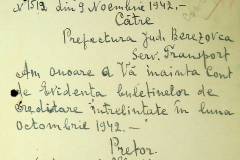 N° 1513 din 9 Noembrie 1942.-
Către
Prefectura Jud. Berezovca
Serv. Transport
Am onoare a Vă inainta Cont
de Evidența buletinelor de
creditare intrelintate in luna
Octombrie 1942.-
Pretor.